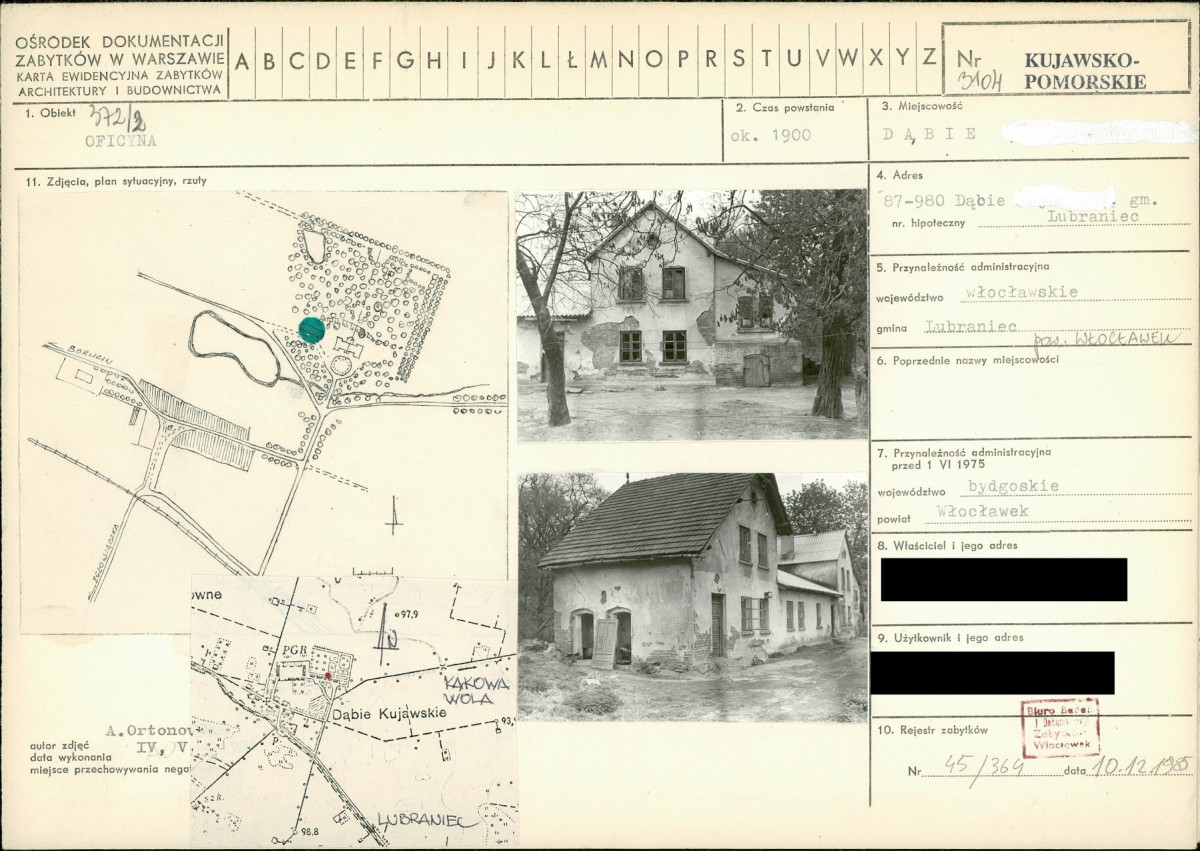 OŚRODEK DOKUMENTACJI
ZABYTKÓW W WARSZAWIE
KARTA EWIDENCYJNA ZABYTKÓW
ARCHITEKTURY I BUDOWNICTWA
A B C D E F G H I J K L Ł M N O P R S T U V W X Y Z
Nr 3104
KUJAWSKO-
POMORSKIE
1. Obiekt 372/2
OFICYNA
2. Czas powstania
ok. 1900
3. Miejscowość
DĄBIE
11. Zdjęcia, plan sytuacyjny, rzuty
4. Adres
87-980 Dąbie gm.
nr. hipoteczny Lubraniec
5. Przynależność administracyjna
województwo włocławskie
gmina Lubraniec
pow. WŁOCŁAWEK
6. Poprzednie nazwy miejscowości
7. Przynależność administracyjna
przed 1 VI 1975
województwo bydgoskie
powiat Włocławek
8. Właściciel i jego adres
9. Użytkownik i jego adres
10. Rejestr zabytków
Biuro Badań
i Dokumentacji
Zabytków
Włocławek
Nr 45/364 data 10.12.1985
BORUCIN
97.9
PGR
KĄKOWA
WOLA
Dąbie Kujawskie
93,
szk.
98.8
LUBRANIEC
A.Ortono
autor zdjęć
IV, V.
data wykonania
miejsce przechowywania nega